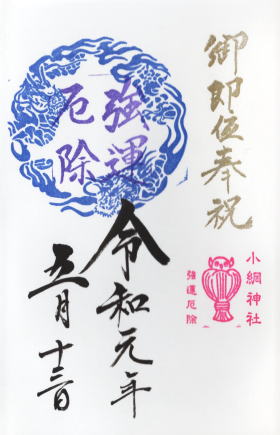 御即位奉祝
強運
厄除
令和元年
五月十三日
小網神社
強運厄除